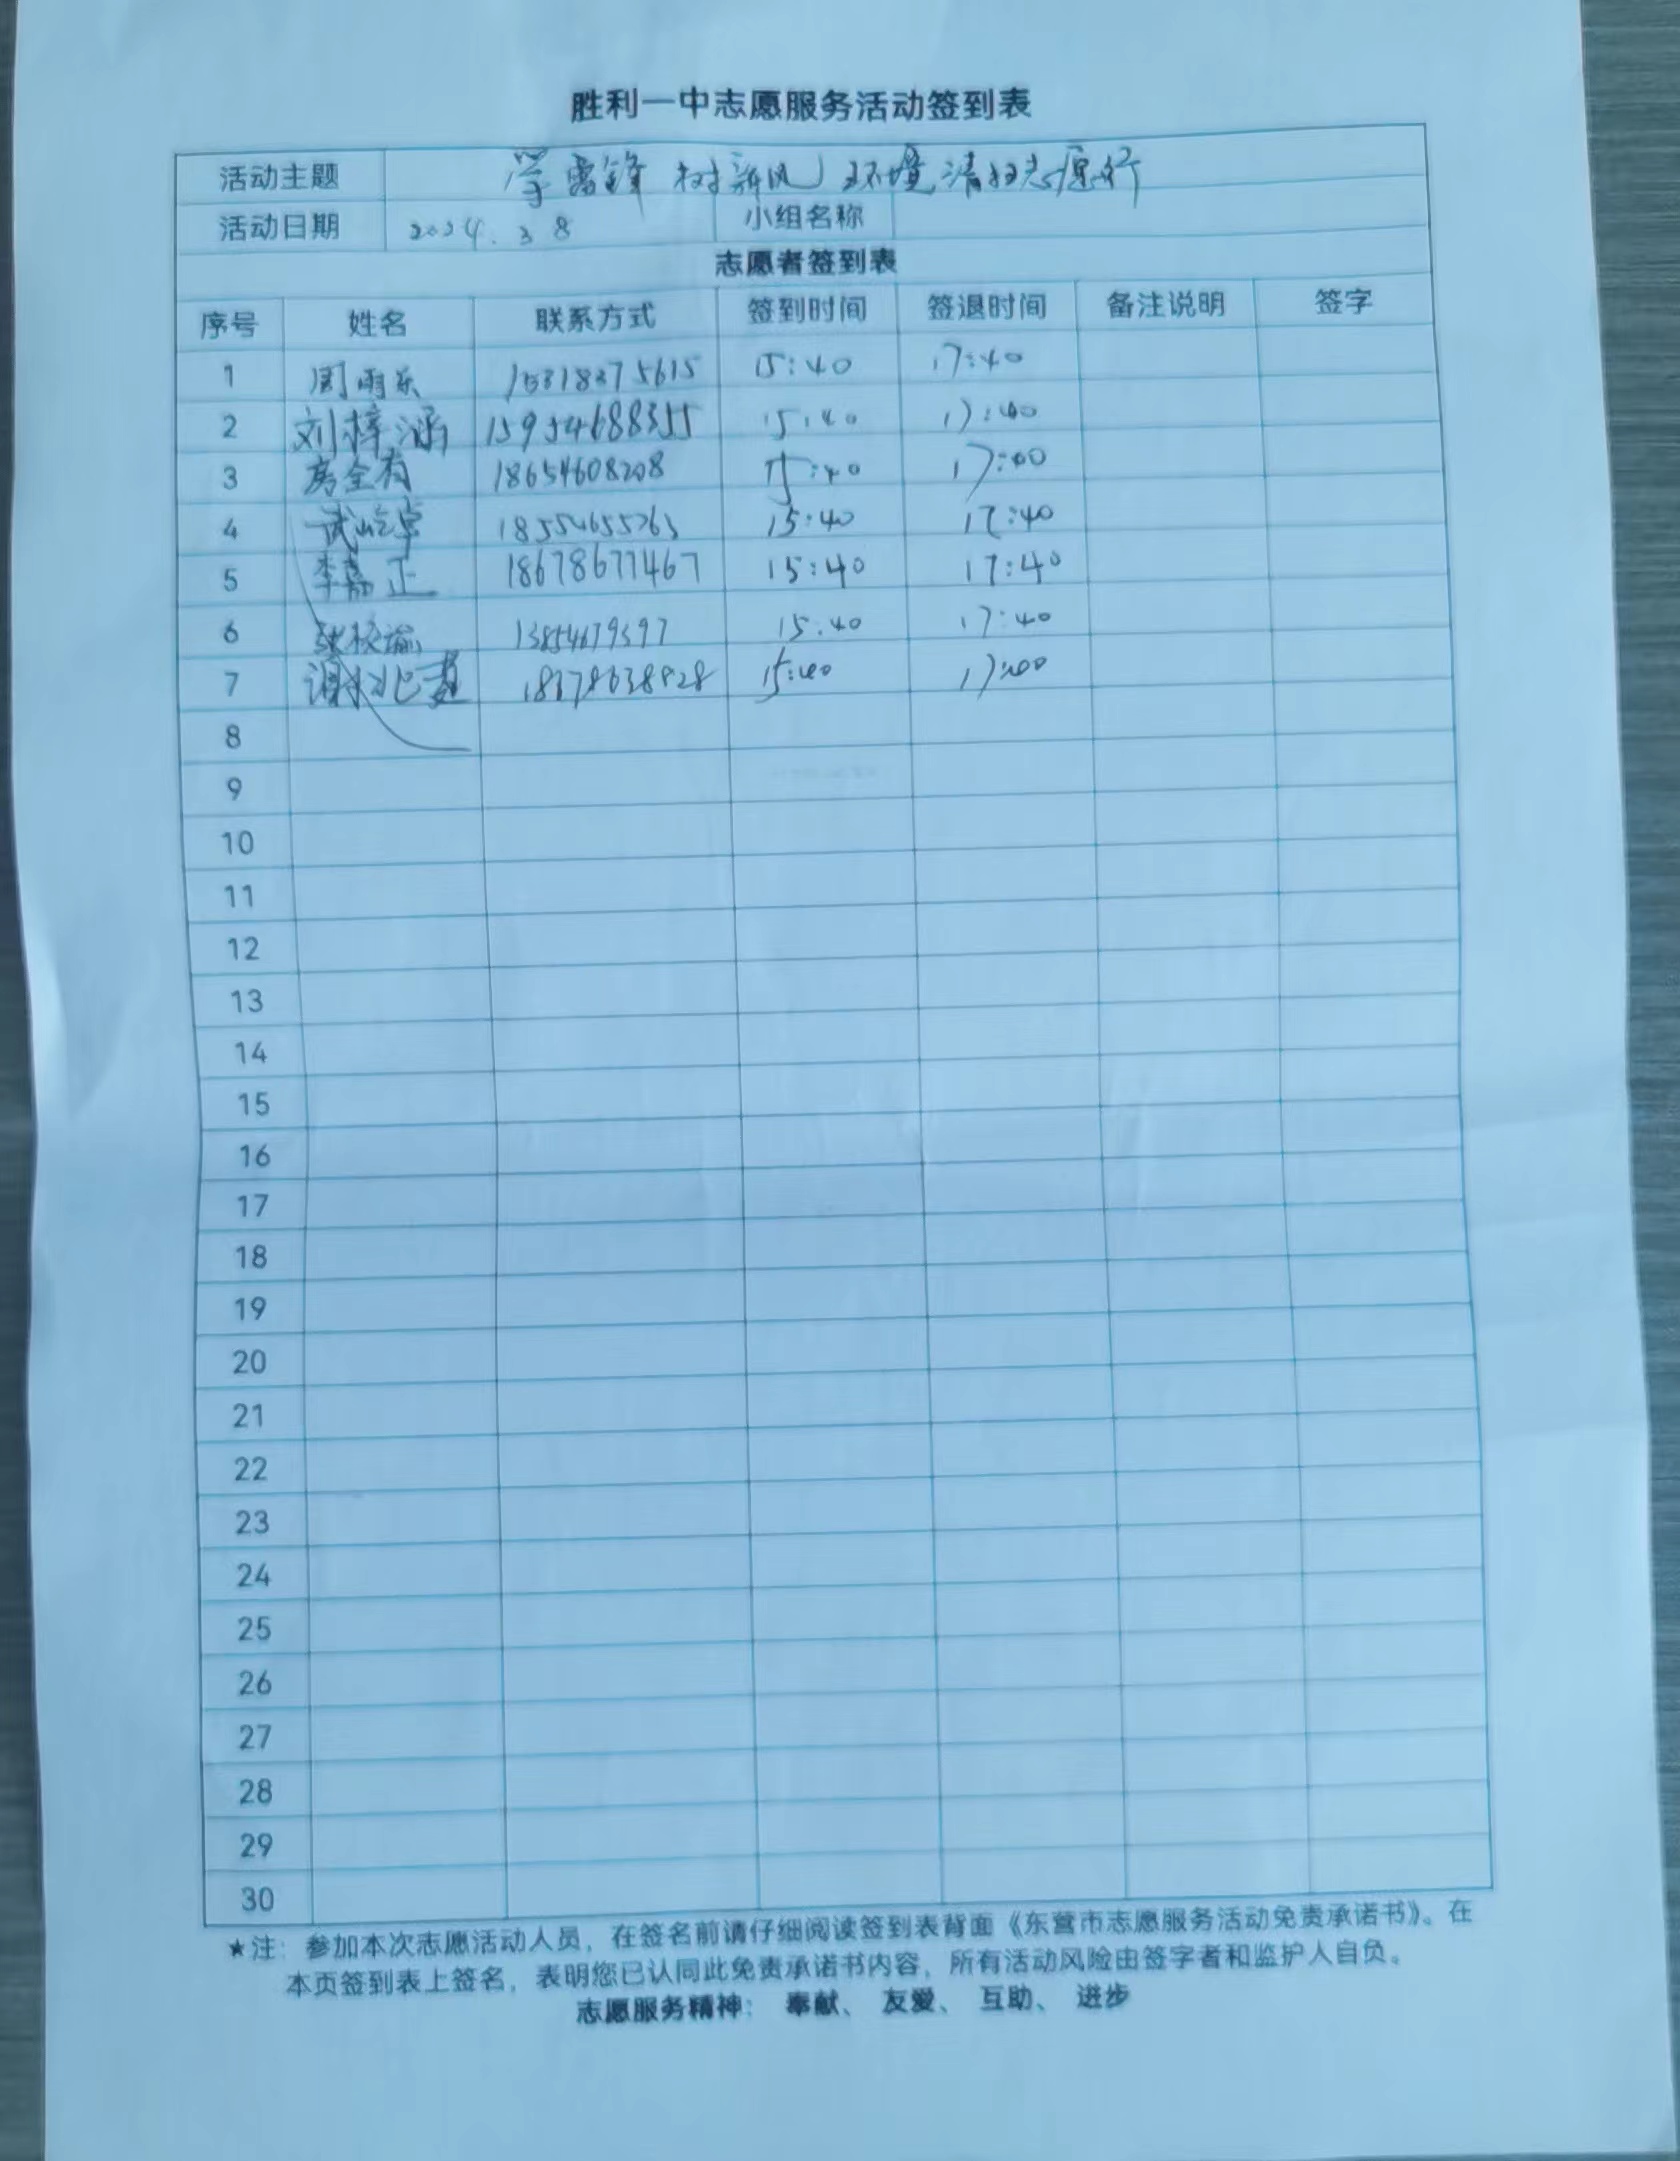 胜利一中志愿服务活动签到表
活动主题 学雷锋 树新风 环境清扫志愿行
活动日期 2024.3 8 小组名称
志愿者签到表
序号 姓名 联系方式 签到时间 签退时间 备注说明 签字
1 周雨乐 15318375615 15:40 17:40
2 刘梓涵 15954688355 15:40 17:40
3 房全有 18654608208 15:40 17:40
4 15:40 17:40
5 李嘉正 18678677467 15:40 17:40
6 13854679397 15:40 17:40
7 15:40 17:40
8
9
10
11
12
13
14
15
16
17
18
19
20
21
22
23
24
25
26
27
28
29
30
★注：参加本次志愿活动人员，在签名前请仔细阅读签到表背面《东营市志愿服务活动免责承诺书》。在
本页签到表上签名，表明您已认同此免责承诺书内容，所有活动风险由签字者和监护人自负。
志愿服务精神： 奉献、 友爱、 互助、 进步